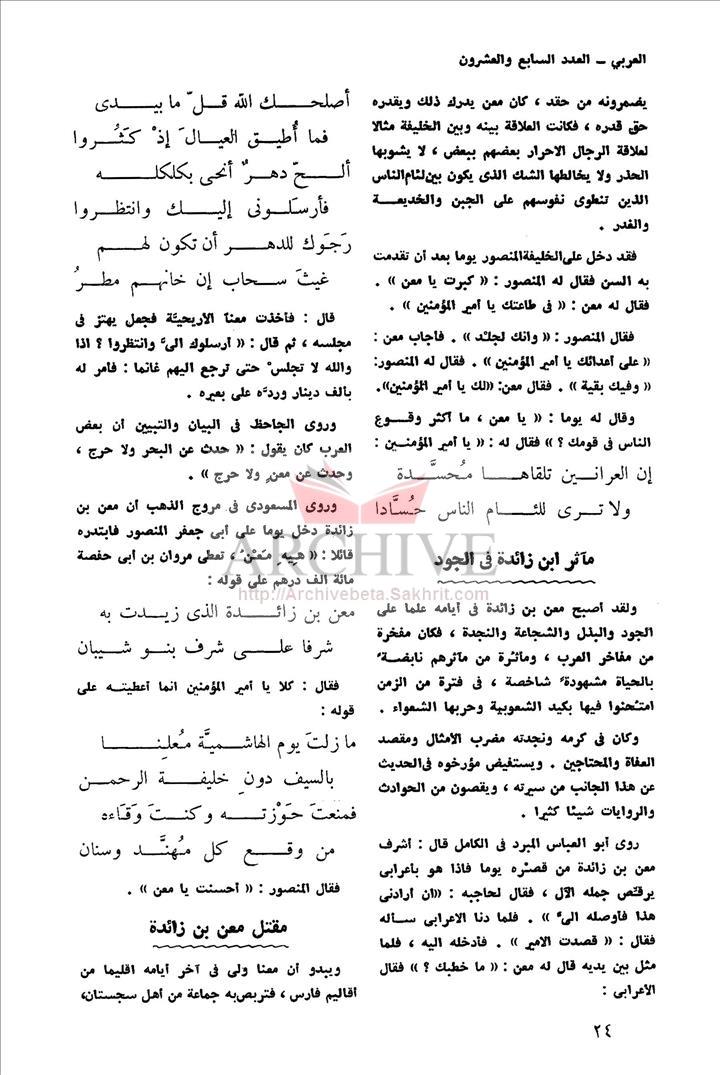 العربي - العدد السابع والعشرون
يضمرونه من حقد ، كان معن يدرك ذلك ويقدره
حق قدره ، فكانت العلاقة بينه وبين الخليفة مثالا
لعلاقة الرجال الاحرار بعضهم ببعض ، لا يشوبها
الحذر ولا يخالطها الشك الذى يكون بين لئام الناس
الذين تنطوى نفوسهم على الجبن والخديعة
والغدر .
فقد دخل على الخليفة المنصور يوما بعد أن تقدمت
به السن فقال له المنصور : « كبرت يا معن » .
فقال له معن : « فى طاعتك يا أمير المؤمنين » .
فقال المنصور : « وانك لجلد » . فأجاب معن :
« على أعدائك يا أمير المؤمنين » . فقال له المنصور:
« وفيك بقية » . فقال معن: «لك يا أمير المؤمنين».
وقال له يوما : « يا معن ، ما أكثر وقوع
الناس فى قومك ؟ » فقال له : « يا أمير المؤمنين :
إن العرانين تلقاها مُحسَّدة
ولا ترى للئام الناس حُسَّادا
مآثر ابن زائدة فى الجود
ولقد أصبح معن بن زائدة فى أيامه علما على
الجود والبذل والشجاعة والنجدة ، فكان مفخرة
من مفاخر العرب ، ومأثرة من مآثرهم نابضة ً
بالحياة مشهودة ً شاخصة ، فى فترة من الزمن
امتُحنوا فيها بكيد الشعوبية وحربها الشعواء .
وكان فى كرمه ونجدته مضرب الأمثال ومقصد
العفاة والمحتاجين . ويستفيض مؤرخوه فى الحديث
عن هذا الجانب من سيرته ، ويقصون من الحوادث
والروايات شيئا كثيرا .
روى أبو العباس المبرد فى الكامل قال : أشرف
معن بن زائدة من قصره يوما فاذا هو بأعرابى
يرقّص جمله الآل ، فقال لحاجبه : «ان أرادنى
هذا فأوصله الىّ » . فلما دنا الاعرابى سأله
فقال : « قصدت الامير » . فأدخله اليه ، فلما
مثل بين يديه قال له معن : « ما خطبك ؟ » فقال
الأعرابى :
أصلحك الله قلّ ما بيدى
فما أُطيق العيالَ إذْ كَثُروا
ألحّ دهرٌ أنحى بكلكله
فأرسلونى إليك وانتظروا
رَجَوك للدهر أن تكون لهم
غيثَ سحاب إن خانهم مطرُ
قال : فأخذت معناً الأريحيَّة فجعل يهتز فى
مجلسه ، ثم قال : « أرسلوك الىّ وانتظروا ؟ اذا
والله لا تجلسْ حتى ترجع اليهم غانما : فأمر له
بألف دينار وردَّه على بعيره .
وروى الجاحظ فى البيان والتبيين أن بعض
العرب كان يقول : « حدث عن البحر ولا حرج ،
وحدث عن معنٍ ولا حرج » .
وروى المسعودى فى مروج الذهب أن معن بن
زائدة دخل يوما على أبى جعفر المنصور فابتدره
قائلا : « هيهِ مَعنُ ، تعطى مروان بن أبى حفصة
مائة الف درهم على قوله :
معن بن زائدة الذى زيدت به
شرفا على شرف بنو شيبان
فقال : كلا يا أمير المؤمنين انما أعطيته على
قوله :
ما زلتَ يوم الهاشميَّة مُعلِنا
بالسيف دونِ خليفة الرحمن
فمنعتَ حَوْزته وكنتَ وَقَاءه
من وقع كل مُهنَّد وسنان
فقال المنصور : « أحسنت يا معن » .
مقتل معن بن زائدة
ويبدو أن معنا ولى فى آخر أيامه اقليما من
أقاليم فارس ، فتربص به جماعة من أهل سجستان،
٢٤
ARCHIVE
http://Archivebeta.Sakhrit.com